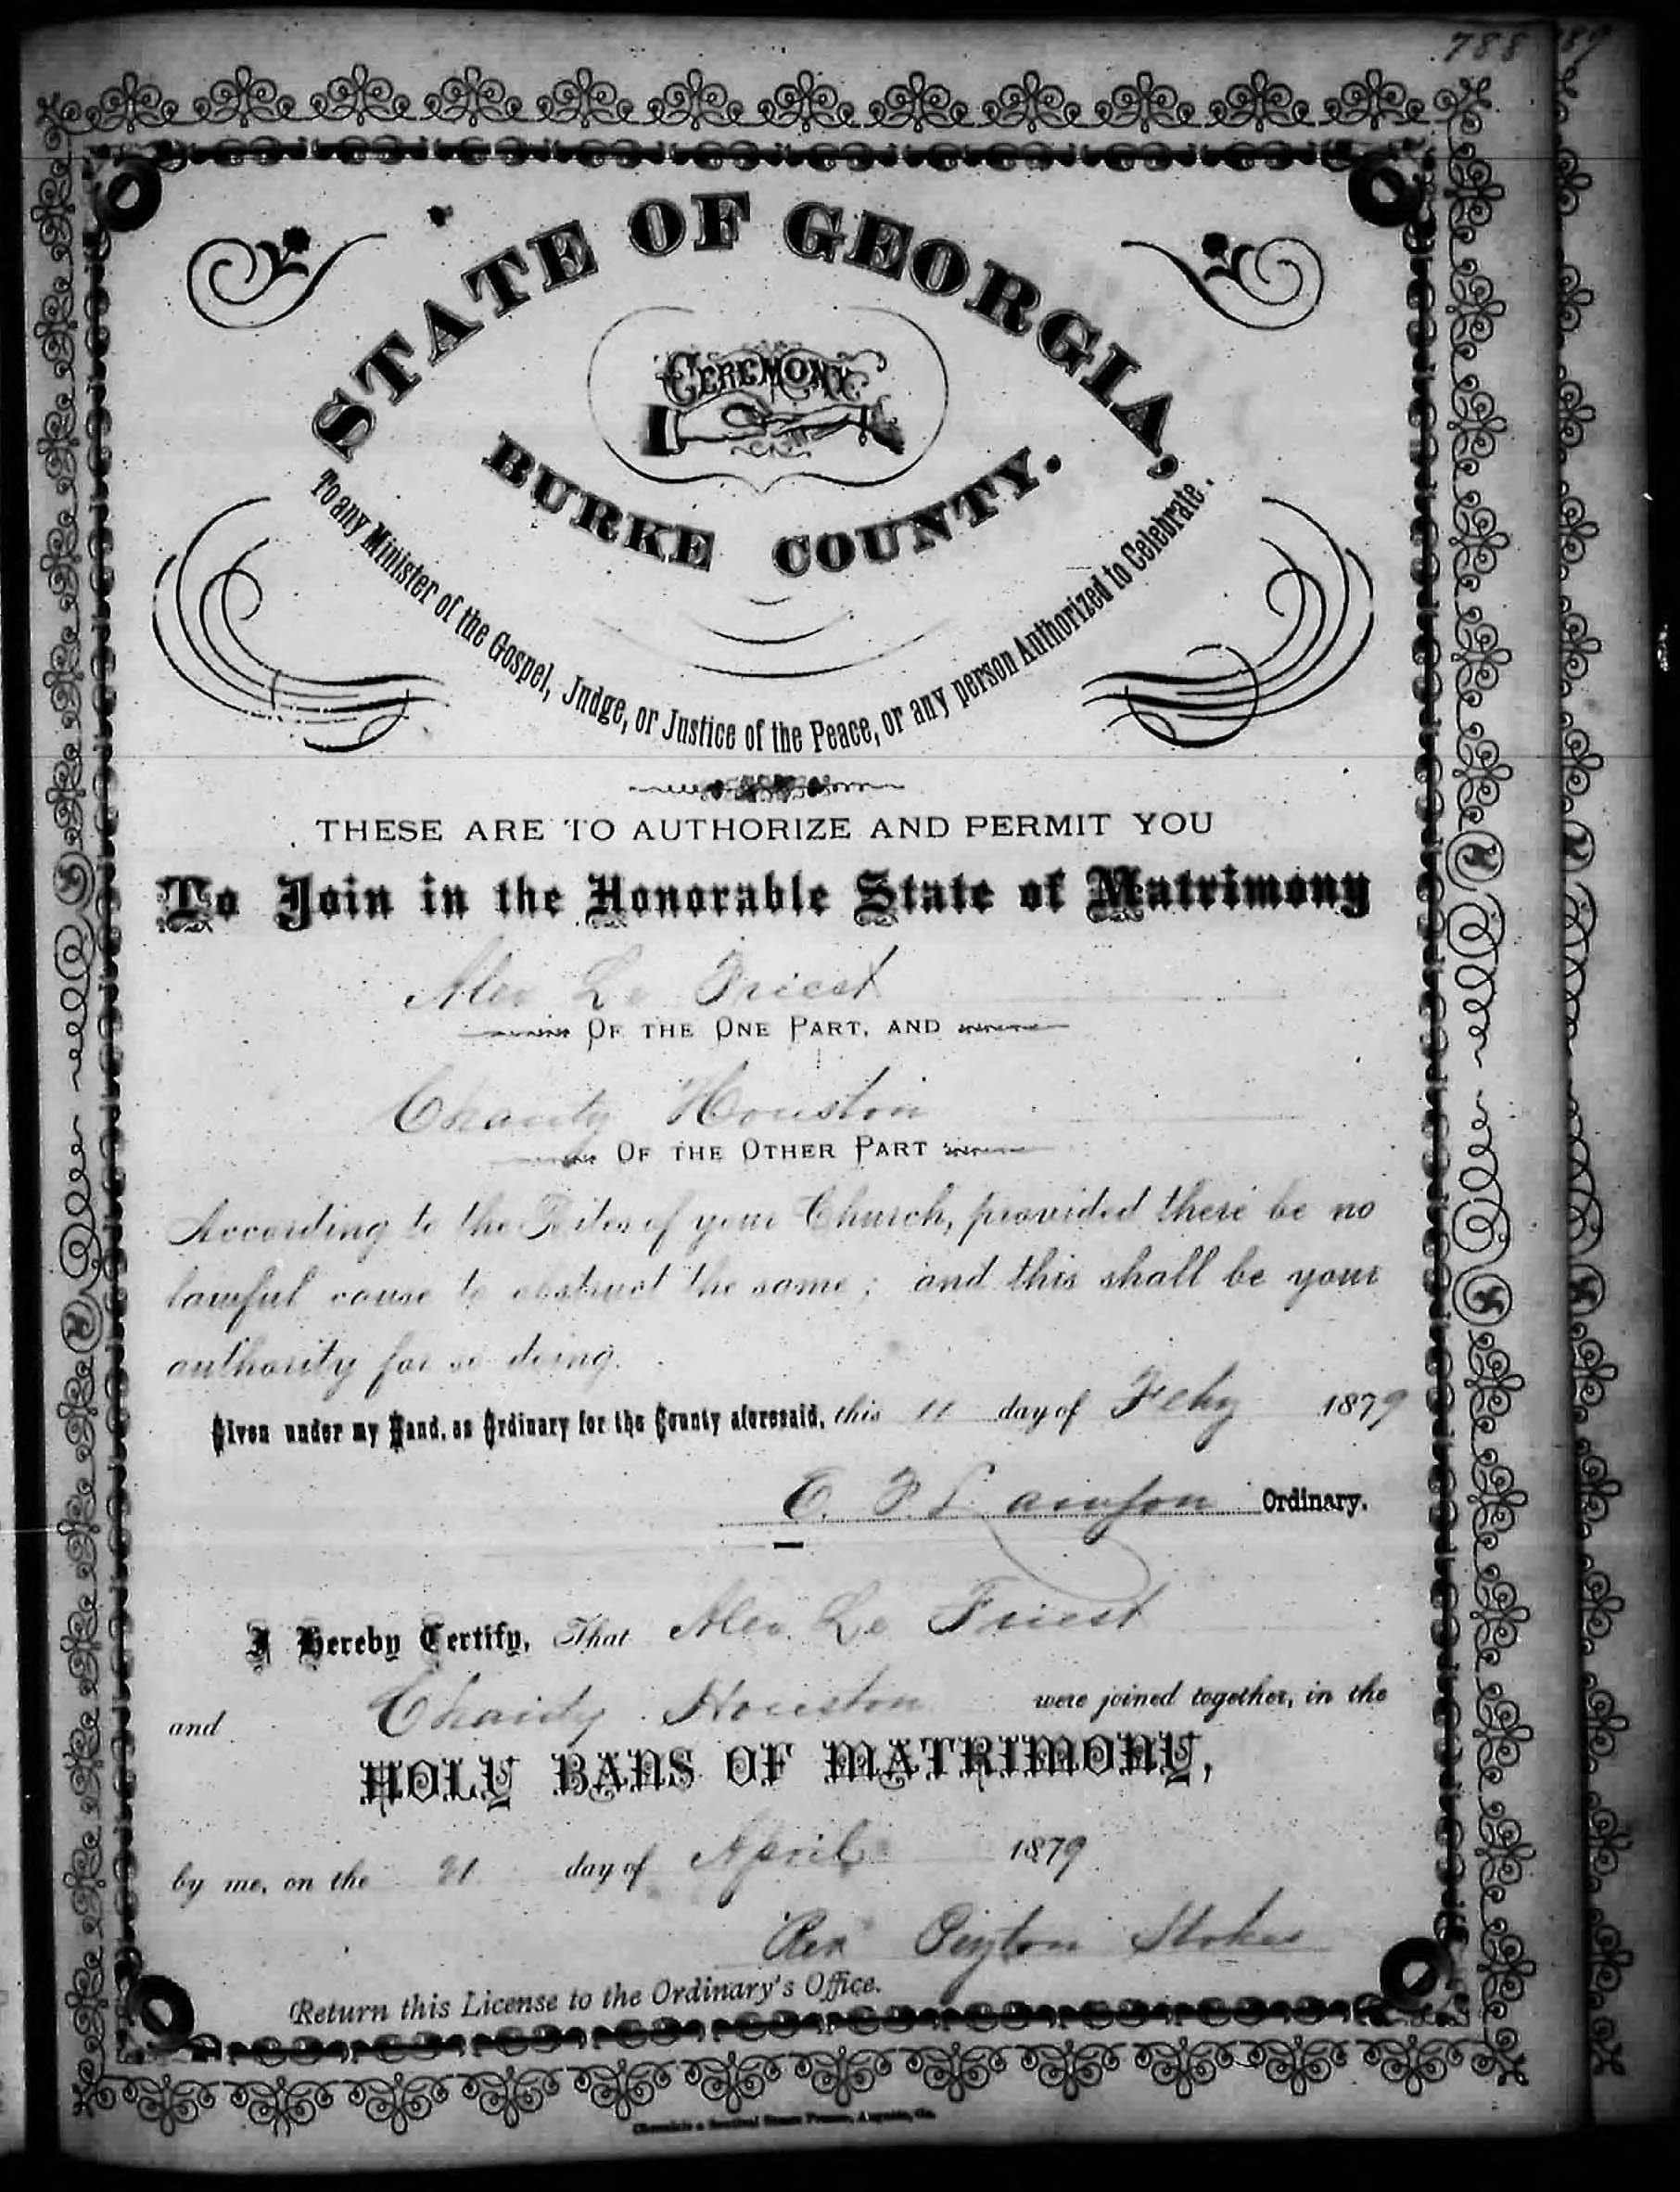 788 89
STATE OF GEORGIA,
CEREMONY
BURKE COUNTY.
To any Minister of the Gospel, Judge, or Justice of the Peace, or any person Authorized to Celebrate.
THESE ARE TO AUTHORIZE AND PERMIT YOU
To Join in the Honorable State of Matrimony
Alex Le Priest
OF THE ONE PART, AND
Charity Houston
OF THE OTHER PART
According to the Rites of your Church, provided there be no
lawful cause to obstruct the same; and this shall be your
authority for so doing.
Given under my Hand, as Ordinary for the County aforesaid, this 11 day of Feby 1879
E. F. Lawson Ordinary.
I Hereby Certify, That Alex Le Priest
and Charity Houston were joined together, in the
HOLY BANS OF MATRIMONY,
by me, on the 21 day of April 1879
Rev Peyton Stokes
Return this License to the Ordinary's Office.
Chronicle & Sentinel Steam Presses, Augusta, Ga.